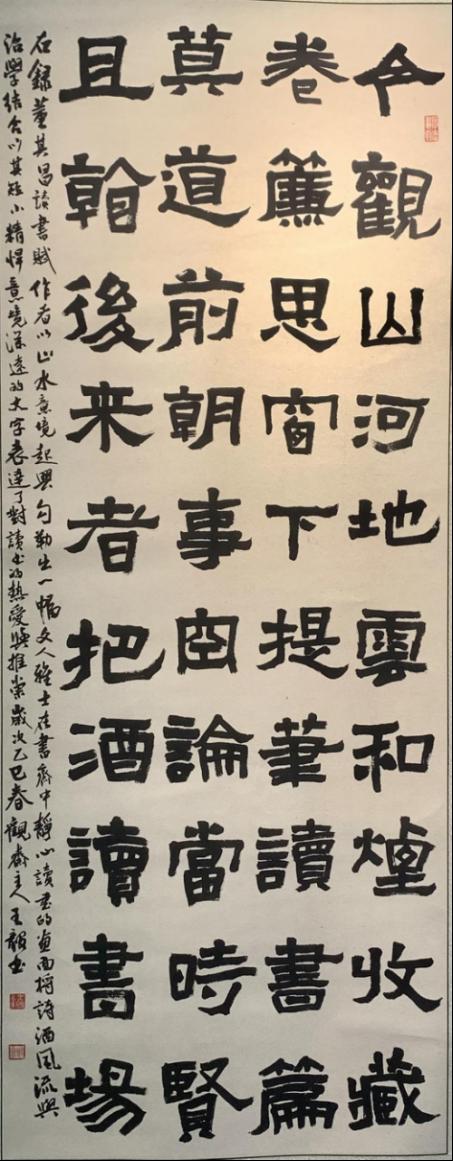 今觀山河地雲和煙收藏
卷簾思窗下提筆讀書篇
莫道前朝事罔論當時賢
且翰後来者把酒讀書場
右録董其昌論書賦作者以山水意境起興勾勒出一幅文人雅士在書齋中靜心讀書的畫面將詩酒風流與
治學結合以其短小精悍意境深遠的文字表達了對讀書的熱愛與推崇歲次乙巳春觀齋主人王韻書